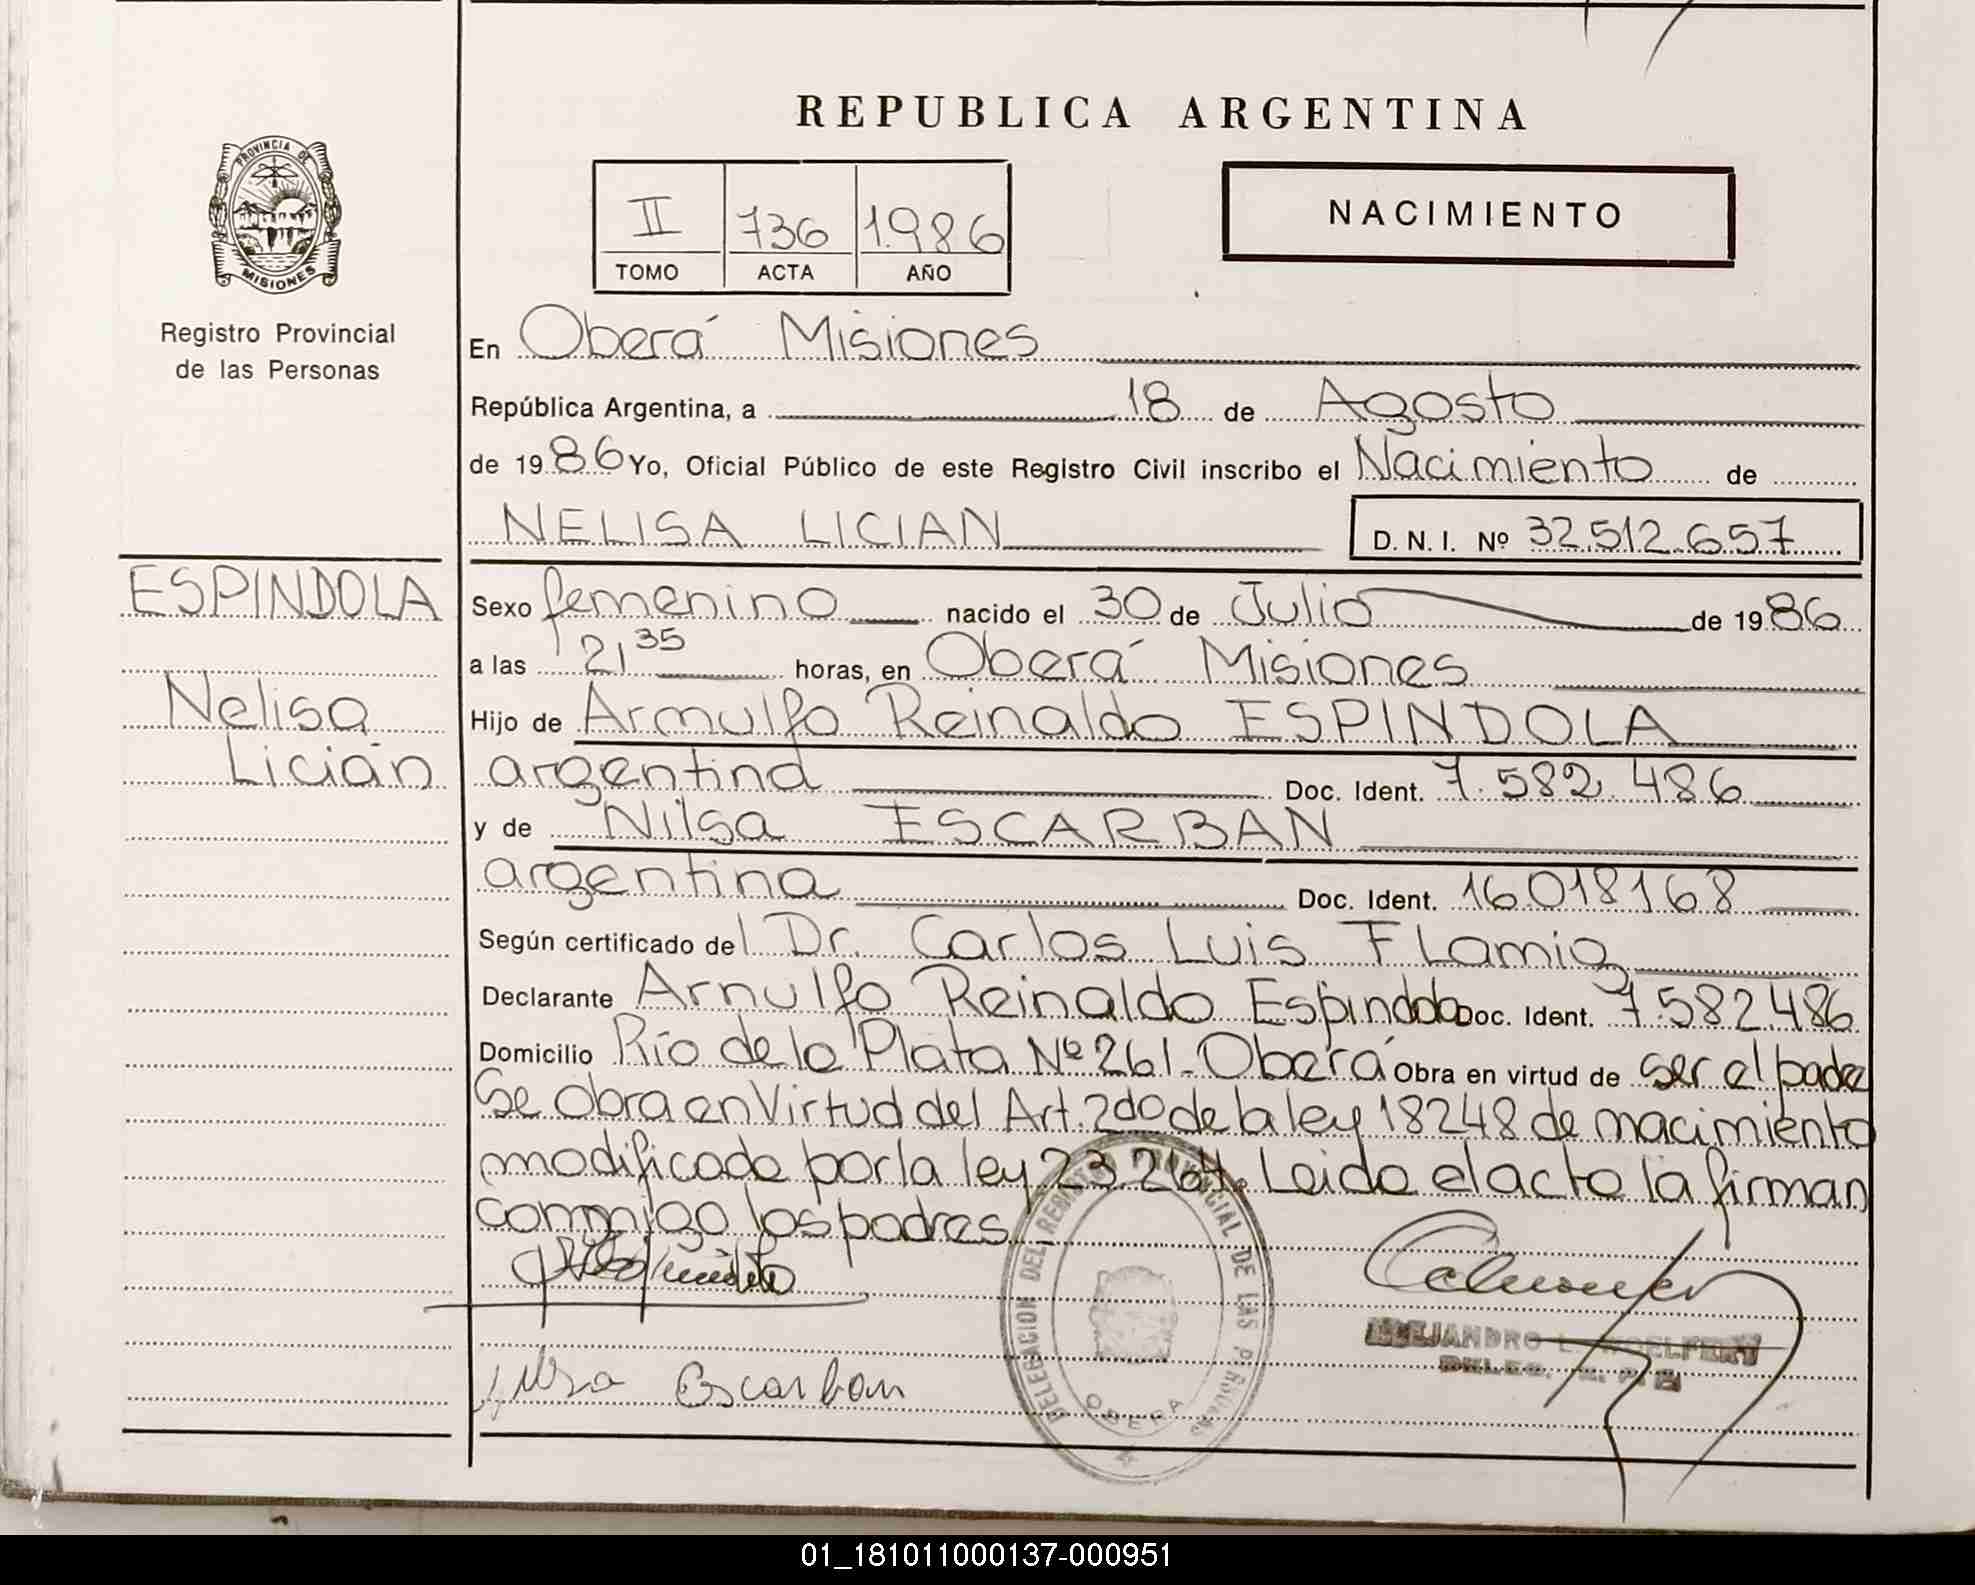 REPUBLICA ARGENTINA
PROVINCIA DE
MISIONES
Registro Provincial
de las Personas
II 736 1.986
TOMO ACTA AÑO
NACIMIENTO
En Oberá Misiones
República Argentina, a 18 de Agosto
de 1986 Yo, Oficial Público de este Registro Civil inscribo el Nacimiento de
NELISA LICIAN D. N. I. Nº 32.512.657
ESPINDOLA
Nelisa
Licián
Sexo femenino nacido el 30 de Julio de 1986
a las 21,35 horas, en Oberá Misiones
Hijo de Arnulfo Reinaldo ESPINDOLA
argentina Doc. Ident. 7.582.486
y de Nilsa ESCARBAN
argentina Doc. Ident. 16.018168
Según certificado del Dr. Carlos Luis Flamig
Declarante Arnulfo Reinaldo Espindola Doc. Ident. 7.582.486
Domicilio Río de la Plata Nº 261 - Oberá Obra en virtud de ser el padre
Se obra en Virtud del Art. 2do de la ley 18248 de nacimiento
modificada por la ley 23.264. Leida el acta la firman
conmigo los padres
DELEGACION DEL REGISTRO PROVINCIAL DE LAS PERSONAS
OBERA
Nilsa Escarban
ALEJANDRO L.
DELEG.
01_181011000137-000951